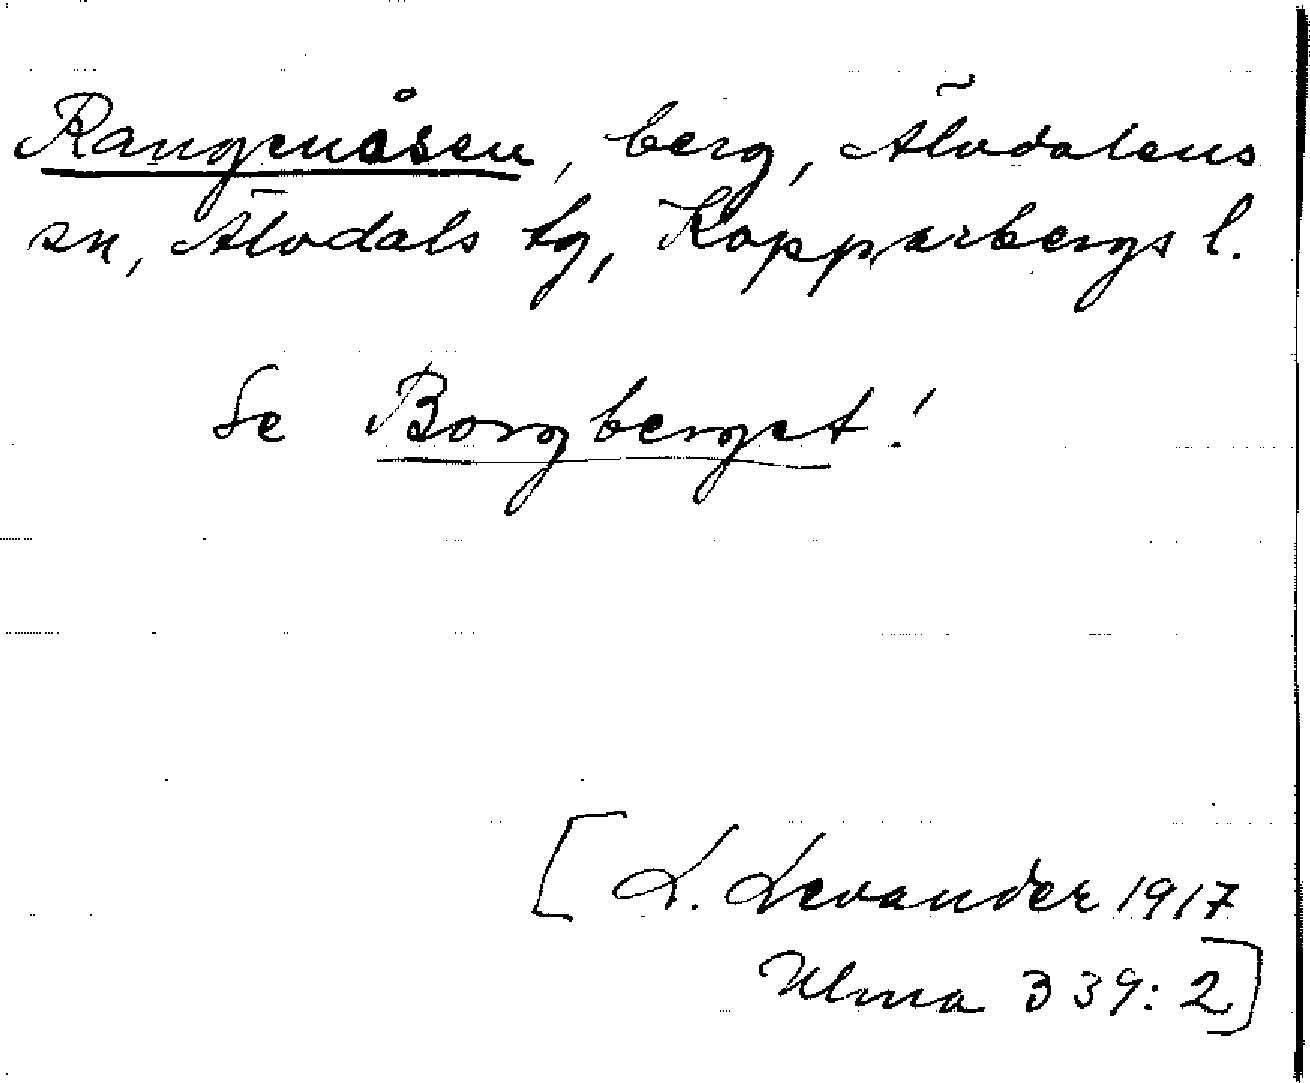 Rangenåsen, berg, Älvdalens
sn, Älvdals tg, Kopparbergs l.
Se Borgberget!
[L. Levander 1917
Ulma 339:2]